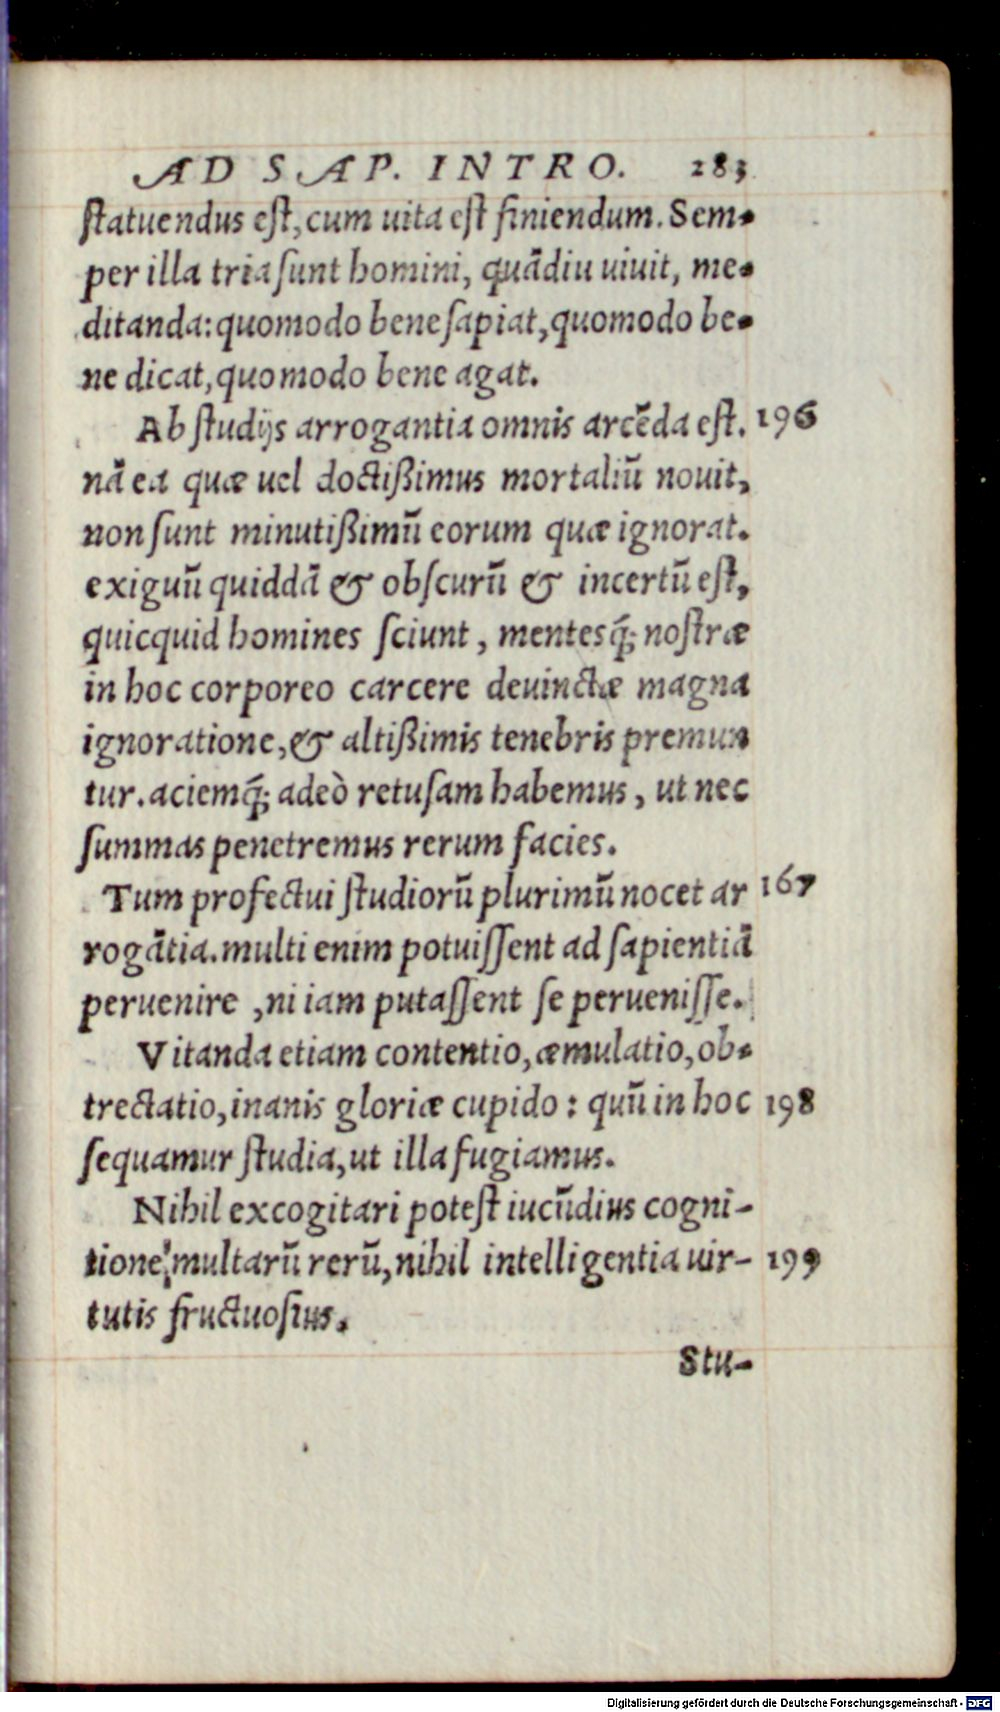 AD SAP. INTRO. 283
ſtatuendus eſt, cum uita eſt finiendum. Sem-
per illa tria ſunt homini, quādiu uiuit, me-
ditanda: quomodo bene ſapiat, quomodo be-
ne dicat, quomodo bene agat.
Ab ſtudijs arrogantia omnis arcēda eſt. 196
nā ea quæ uel doctißimus mortaliū nouit,
non ſunt minutißimū eorum quæ ignorat.
exiguū quiddā & obſcurū & incertū eſt,
quicquid homines ſciunt, mentesq́; noſtræ
in hoc corporeo carcere deuinctæ magna
ignoratione, & altißimis tenebris premun
tur. aciemq́; adeò retuſam habemus, ut nec
ſummas penetremus rerum facies.
Tum profectui ſtudiorū plurimū nocet ar 167
rogātia. multi enim potuiſſent ad ſapientiā
peruenire, ni iam putaſſent ſe perueniſſe.
Vitanda etiam contentio, æmulatio, ob-
trectatio, inanis gloriæ cupido: quū in hoc 198
ſequamur ſtudia, ut illa fugiamus.
Nihil excogitari poteſt iucūdius cogni-
tione multarū rerū, nihil intelligentia uir- 199
tutis fructuoſius.
Stu-
Digitalisierung gefördert durch die Deutsche Forschungsgemeinschaft - DFG